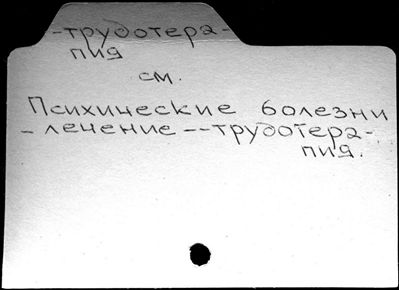 -трудотера-
пия
см.
Психические болезни
-лечение--трудотера-
пия.